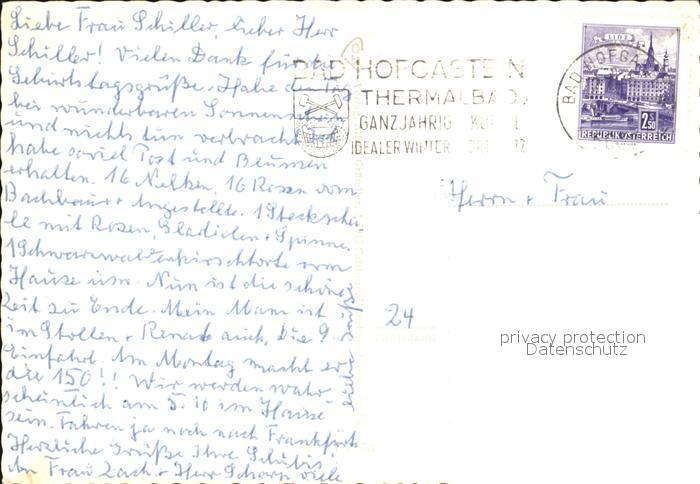 Liebe Frau Schiller, lieber Herr
Schiller! Vielen Dank für die
Geburtstagsgrüße. Habe den Tag
bei wunderbaren Sonnenschein
und nichts tun verbracht
habe soviel Post und Blumen
erhalten. 16 Nelken, 16 Rosen vom
+ Angestellte. 1 Steckscha
le mit Rosen, Gladiolen + Spinne.
1 Schwarzwälderkirschtorte vom
Hause usw. Nun ist die schöne
Zeit zu Ende. Mein Mann ist
im Stollen + Renate auch, die 9.
Einfahrt. Am Montag macht er
die 150!! Wir werden wahr
scheinlich am 5.10 im Hause
sein. Fahren ja noch nach Frankfurt
Herzliche Grüße Ihre
An Frau Zach + Herr viele
liebe Grüße
BAD HOFGASTEIN
THERMALBAD
GANZJÄHRIG KUR
IDEALER WINTER
BAD HOFGA
LINZ
2.50
REPUBLIK ÖSTERREICH
Herrn + Frau
24
privacy protection
Datenschutz